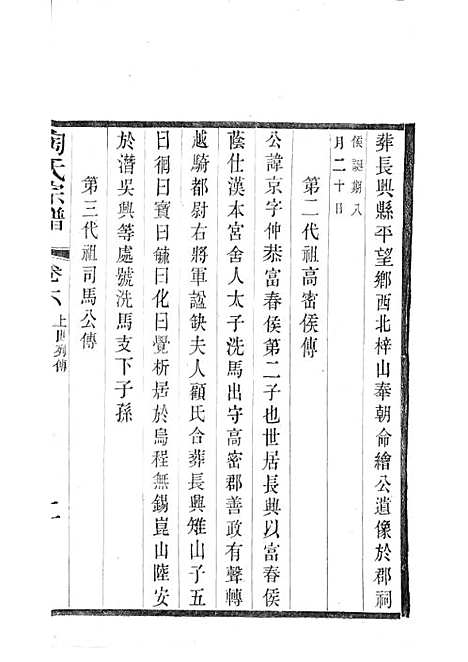 葬長興縣平望鄉西北梓山奉朝命繪公遺像於郡祠
侯誕朔八
月二十日
第二代祖高密侯傳
公諱京字仲恭富春侯第二子也世居長興以富春侯
蔭仕漢本宮舍人太子洗馬出守高密郡善政有聲轉
越騎都尉右將軍諡缺夫人顧氏合葬長興雉山子五
曰徊曰寶曰毓曰化曰覺析居於烏程無錫崑山陸安
於潛吳興等處號洗馬支下子孫
第三代祖司馬公傳
氏宗譜
卷六
上世列傳